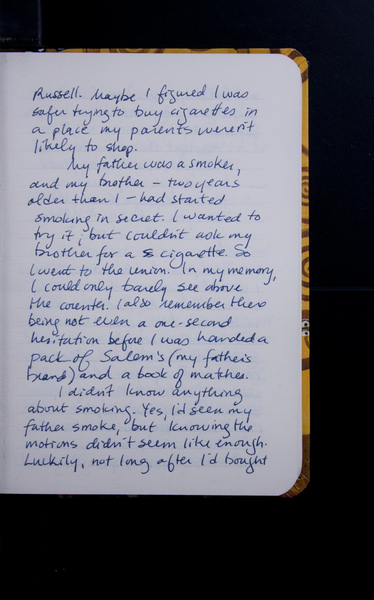 Russell. Maybe I figured I was
safer trying to buy cigarettes in
a place my parents weren't
likely to shop.
My father was a smoker,
and my brother – two years
older than I – had started
smoking in secret. I wanted to
try it, but couldn't ask my
brother for a cigarette. So
I went to the union. In my memory,
I could only barely see above
the counter. I also remember there
being not even a one-second
hesitation before I was handed a
pack of Salem's (my father's
brand) and a book of matches.
I didn't know anything
about smoking. Yes, I'd seen my
father smoke, but knowing the
motions didn't seem like enough.
Luckily, not long after I'd bought